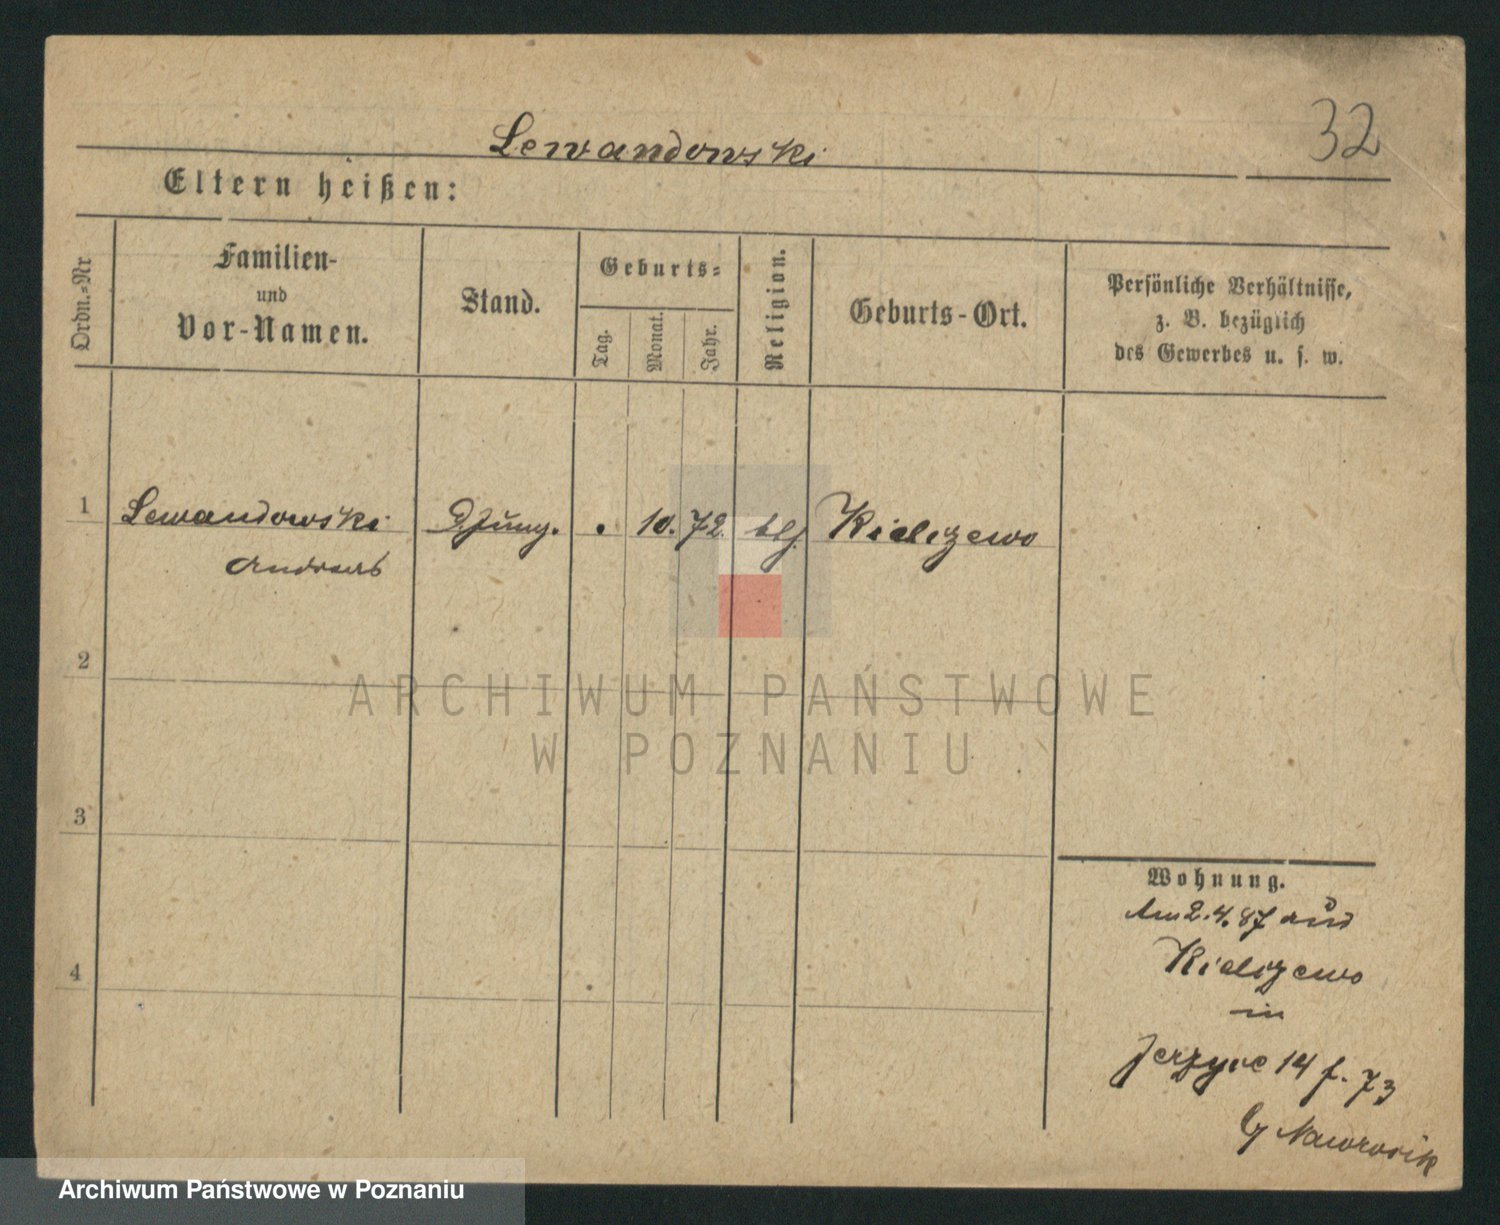 32
Lewandowski
Eltern heißen:
Ordn.-Nr
Familien-
und
Vor-Namen.
Stand.
Geburts-
Tag.
Monat.
Jahr.
Religion.
Geburts-Ort.
Persönliche Verhältnisse,
z. B. bezüglich
des Gewerbes u. s. w.
1 Lewandowski . 10. 72. Kielczewo
Andreas
2
3
4
Wohnung.
Am 2.4.87 aus
Kielczewo
in
Jerzyce 14 f. 73
Nawrocik
ARCHIWUM PAŃSTWOWE
W POZNANIU
Archiwum Państwowe w Poznaniu